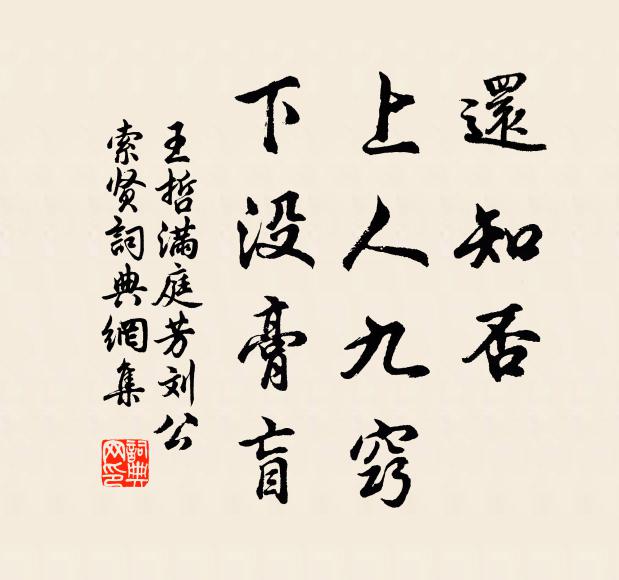 還知否
上人九竅
下没膏盲
王哲满庭芳刘公
索贤詞典網集
詞典
网印